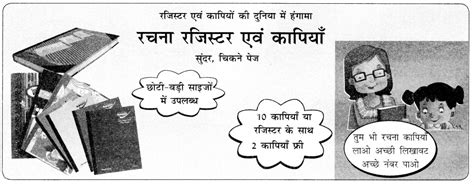 रजिस्टर एवं कापियों की दुनिया में हंगामा
रचना रजिस्टर एवं कापियाँ
सुंदर, चिकने पेज
छोटी-बड़ी साइजों
में उपलब्ध
10 कापियाँ या
रजिस्टर के साथ
2 कापियाँ फ्री
तुम भी रचना कापियाँ
लाओ अच्छी लिखावट
अच्छे नंबर पाओ